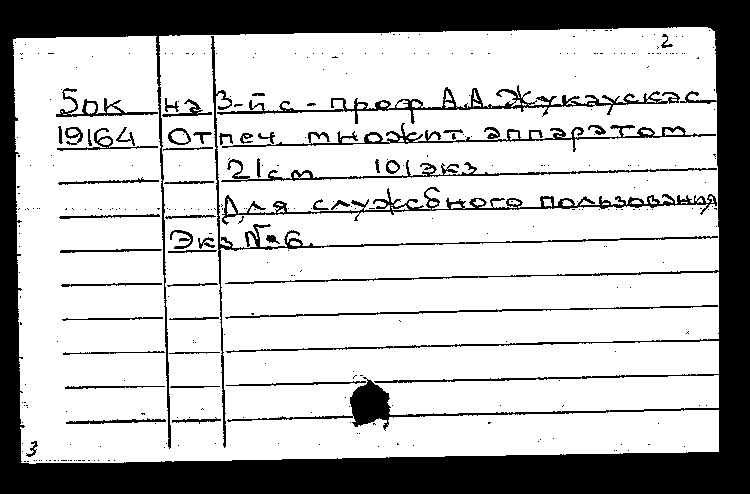 2
5дк на 3-й с - проф А.А. Жукаускас
19164 Отпеч. множит. аппаратом
21см 101экз.
Для служебного пользования
Экз №6.
3